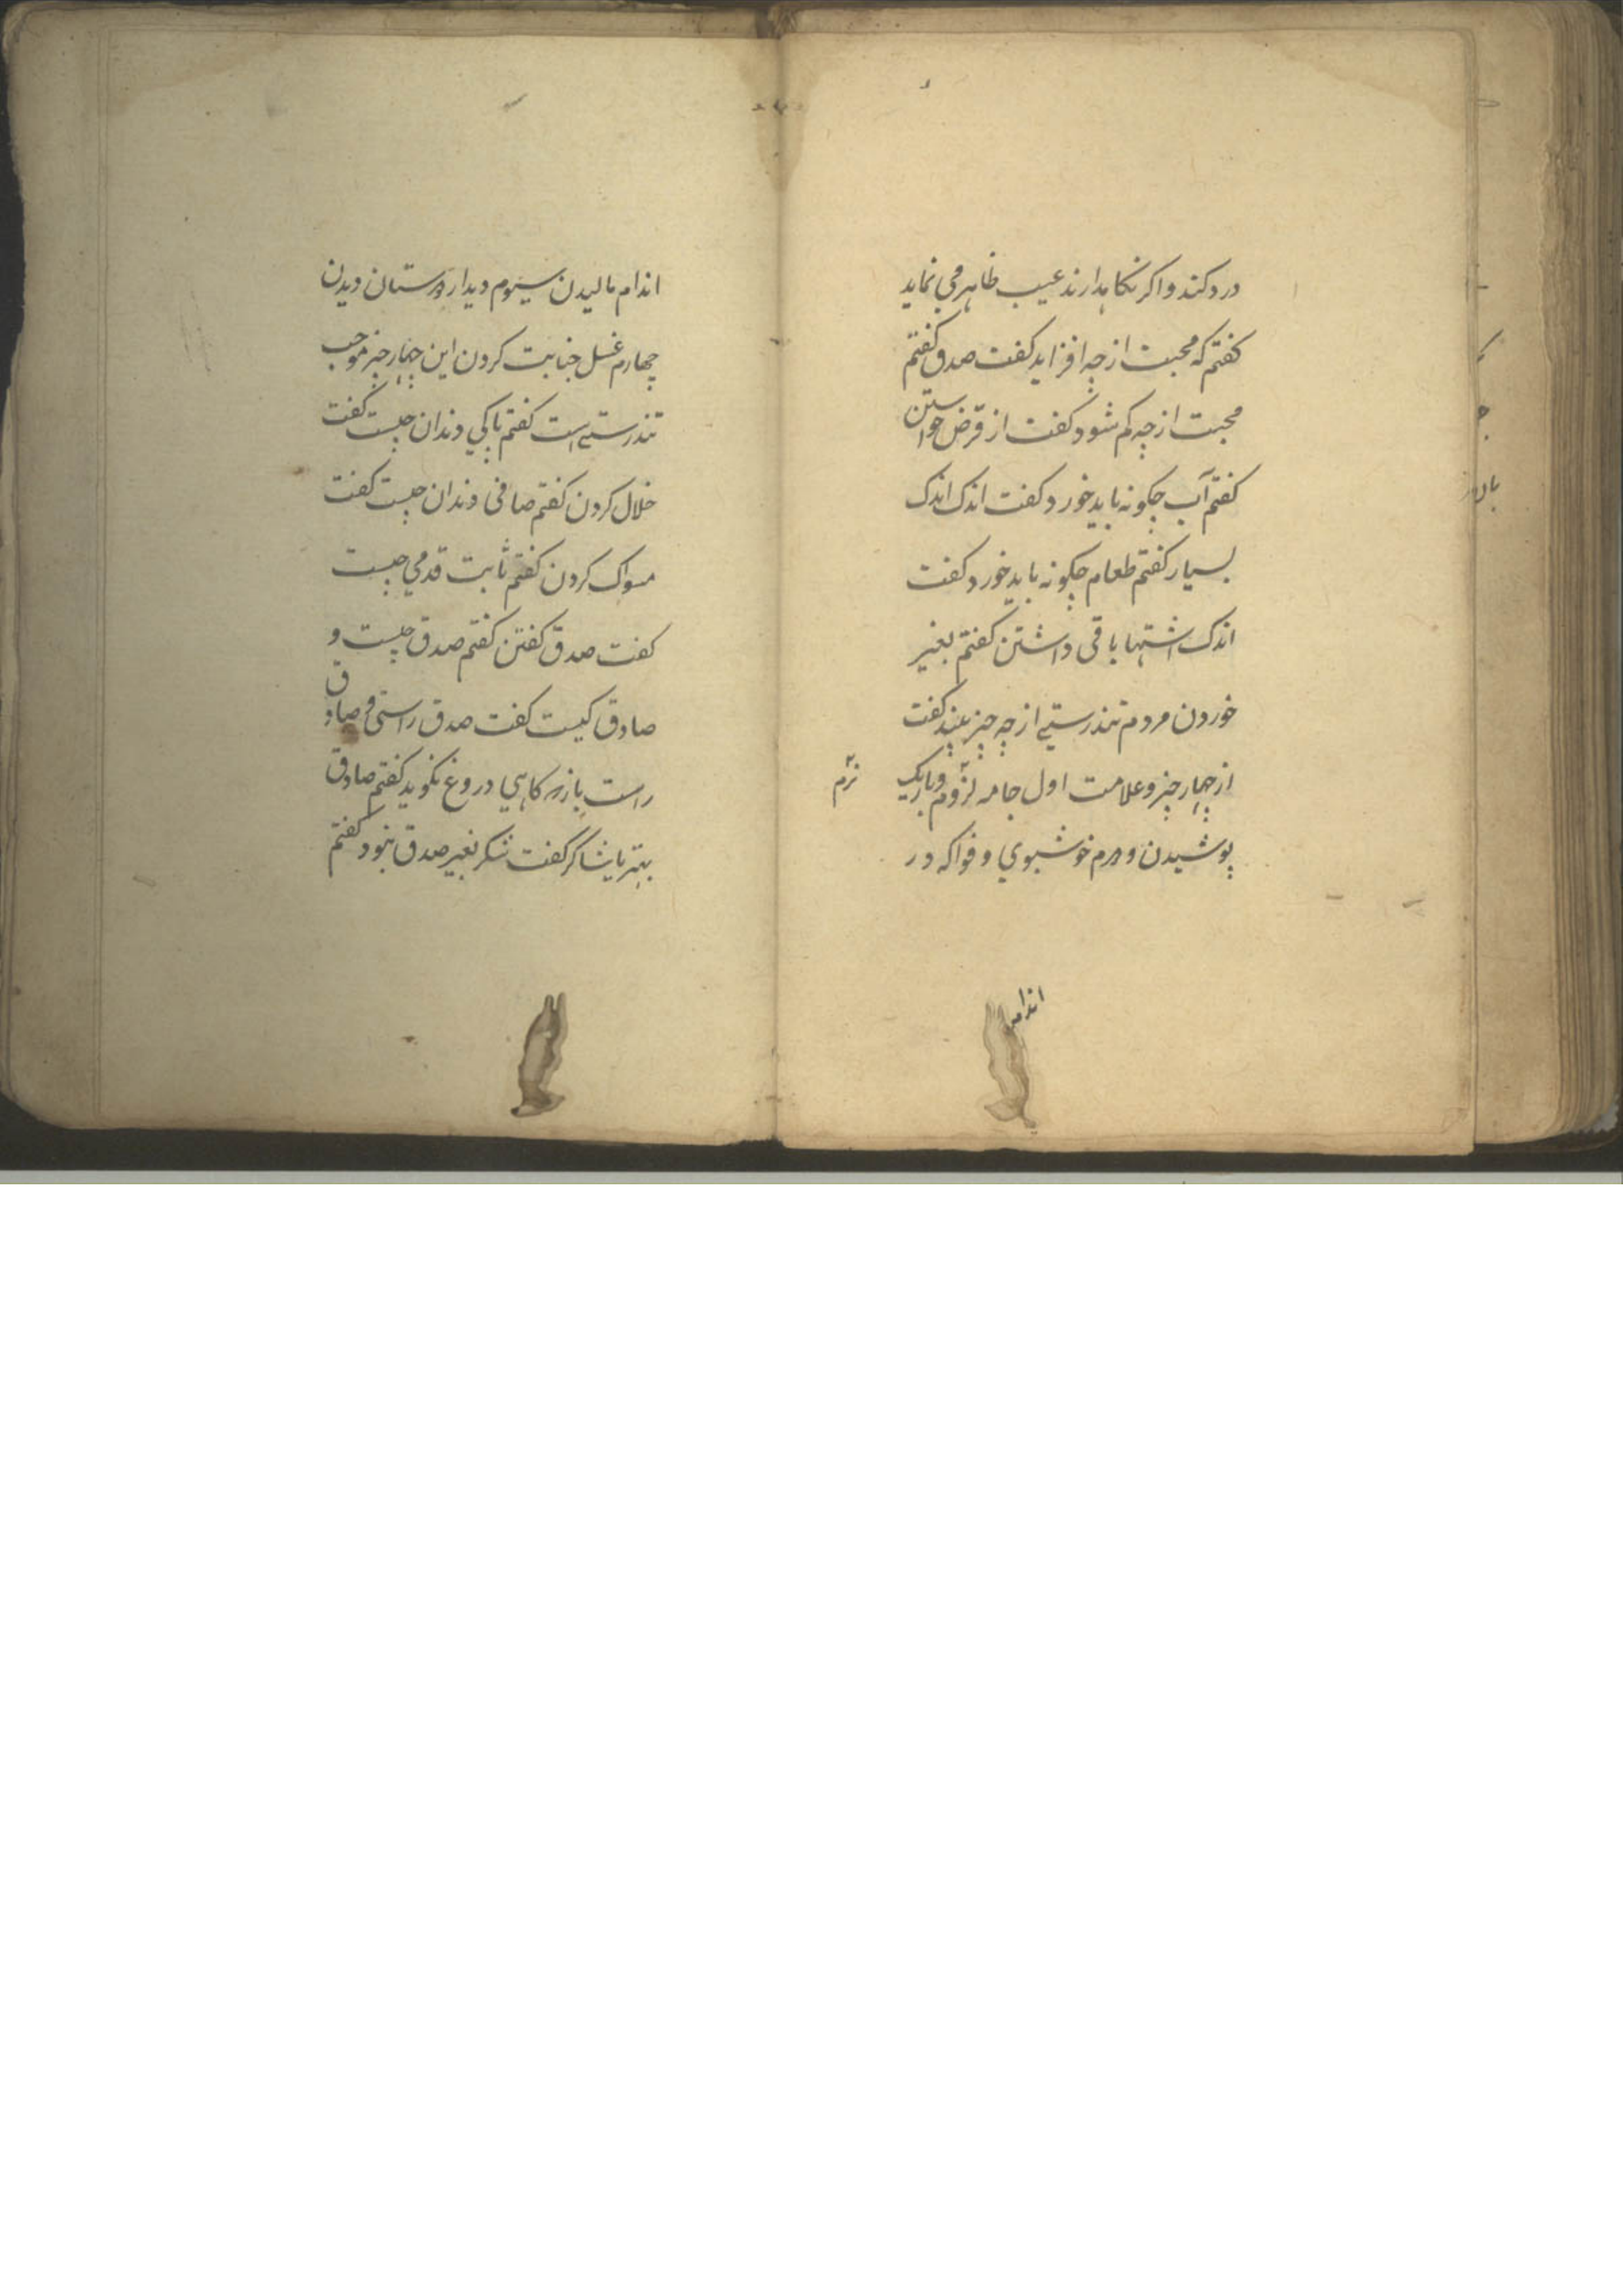 درد کند و اکر نکاهدارند عیب ظاهر می نماید
کفتم که محبت از چه افزاید کفت صدق کفتم
محبت از چه کم شود کفت از قرض خواستن
کفتم آب چکونه باید خورد کفت اندک اندک
بسیار کفتم طعام چکونه باید خورد کفت
اندک اشتها باقی داشتن کفتم بغیر
خوردن مردم تندرستی از چه چیز بیند کفت
از چهار چیز و علامت اول جامه نرم و باریک
نرم
پوشیدن دوم خوشبوی و فواکه در
اندام
اندام مالیدن سیوم دیدار دوستان دیدن
چهارم غسل جنابت کردن این چهار چیز موجب
تندرستی است کفتم پاکی دندان چیست کفت
خلال کردن کفتم صافی دندان چیست کفت
مسواک کردن کفتم ثابت قدمی چیست
کفت صدق کفتن کفتم صدق چیست و
صادق کیست کفت صدق راستی و صادق
راست باز که کاهی دروغ نکوید کفتم صادق
بهتر یا شاکر کفت شکر بغیر صدق نبود کفتم